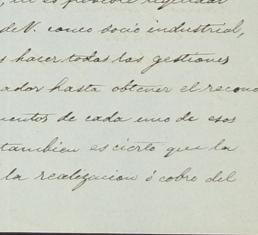 , no es posible
de V. como socio industrial,
s hacer todas las gestiones
ador hasta obtener el recono
mentos de cada uno de esos
tambien es cierto que la
la realizacion ó cobro del